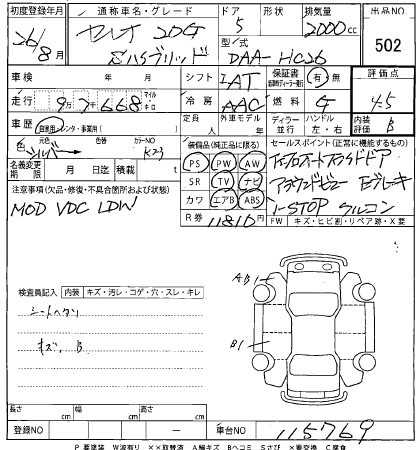 初度登録年月 通称車名・グレード ドア 形状 排気量 出品NO
26/8月 セレナ 20G 5 2000cc 502
S.ハイブリッド 型式 DAA-HC26
車検 年 月 シフト IAT 保証書 有 無 評価点
走行 9万7千668 マイル キロ 冷房 AAC 燃料 G 4.5
車歴 自家用・レンタ・事業用( ) 定員 人 外車モデル 年 ディーラー 並行 ハンドル 左・右 内装評価 B
色 シルバー 元色 カラーNO K23
装備品(純正品に限る) セールスポイント(正常に機能するもの)
名義変更期限 月 日 積載 t
PS PW AW
SR TV ナビ
カワ エアB ABS
アラウンドビュー Eブレーキ
I-STOP クルコン
注意事項(欠品・修復・不具合箇所および状態)
MOD VDC LDW
R券 11810円 FW キズ・ヒビ割・リペア跡・X要
検査員記入 内装 キズ・汚レ・コゲ・穴・スレ・キレ
シートヘタリ
キズ、B
AB1
B1
長さ cm 幅 cm 高さ cm
登録NO ー 車台NO 115769
P 要塗装 W波有り ××取替済 A線キズ Bヘコミ Sさび ×要交換 C腐食